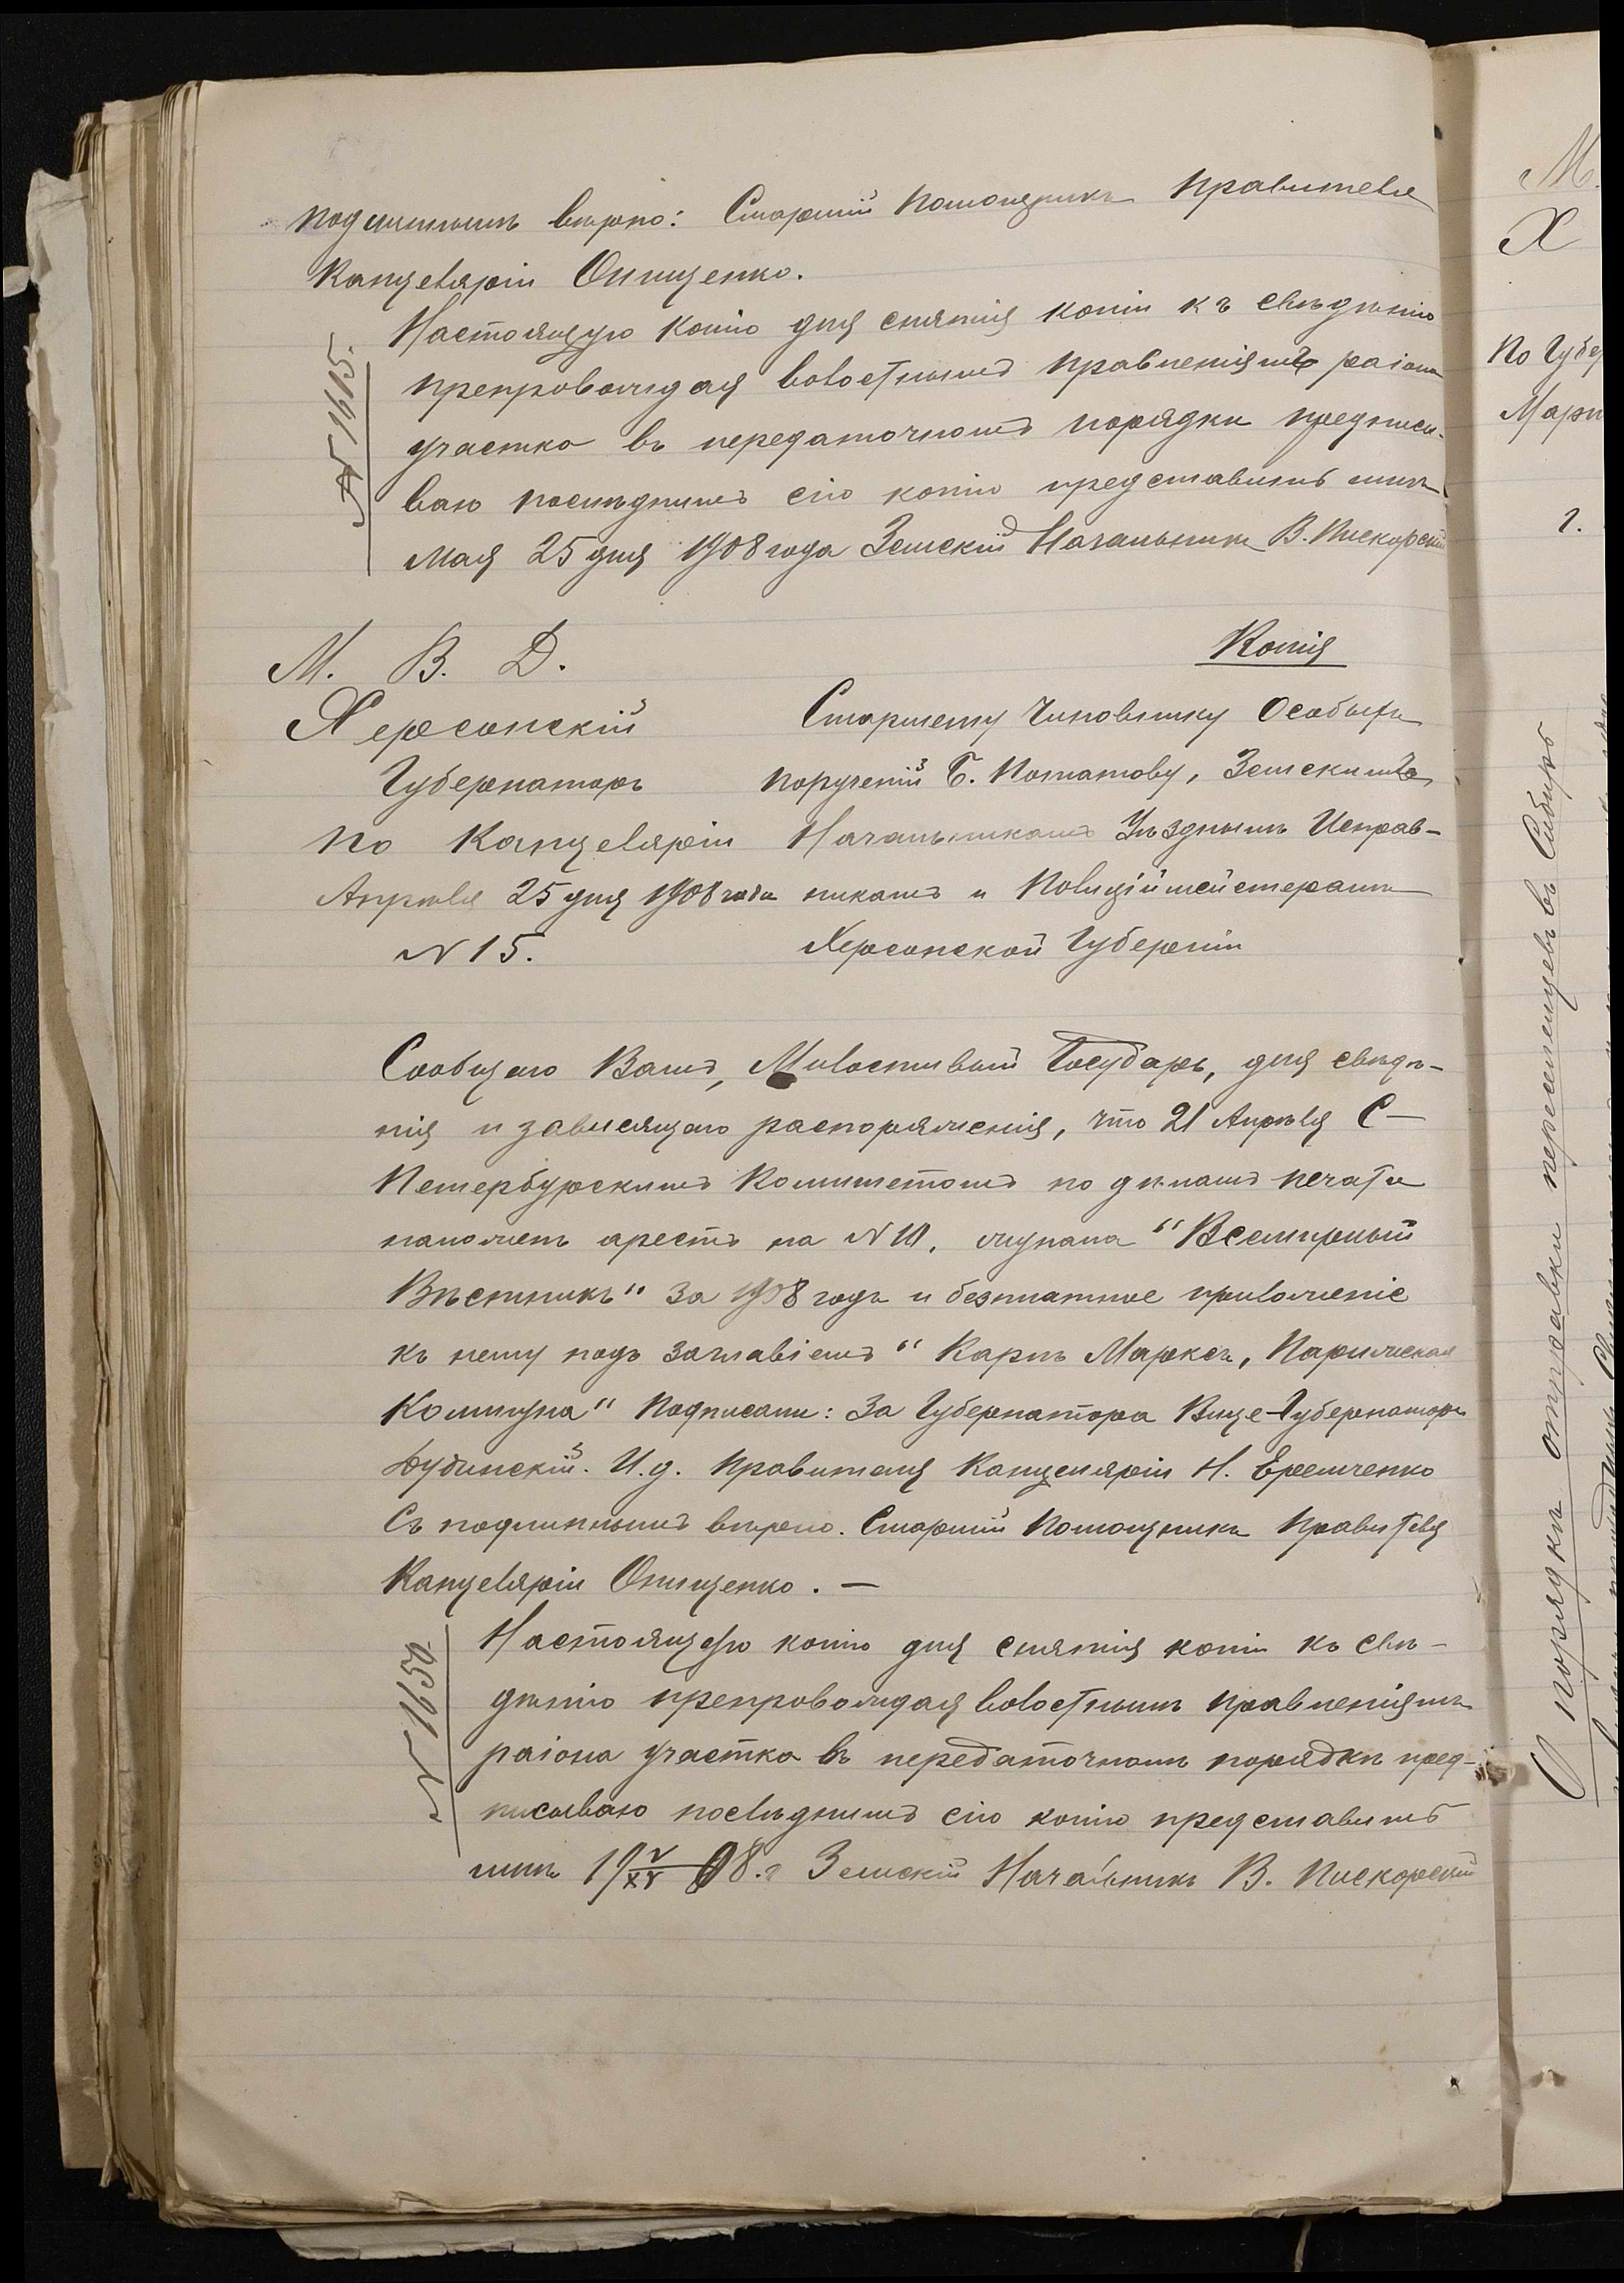 подлиннымъ вѣрно: Старшій Помощникъ Правителя
Канцеляріи Онищенко.
№ 1615.
Настоящую копію для снятія копіи къ свѣдѣнію
препровождая волостнымъ правленіямъ раіона
участка въ передаточномъ порядки предписы-
ваю послѣднимъ сію копію представить мнѣ.
Мая 25 дня 1908 года Земскій Начальникъ В. Пискорскій
М. В. Д.
Херсонскій
Губернаторъ
по Канцеляріи
Апрѣля 25 дня 1908 года
№ 15.
Копія
Старшему Чиновнику Особыхъ
порученій Б. Потатову, Земскимъ
Начальникамъ Уѣзднымъ Исправ-
никамъ и Полиціймейстерамъ
Херсонской Губерніи
Сообщаю Вамъ, Милостивый Государь, для свѣдѣ-
нія и зависящаго распоряженія, что 21 Апрѣля С-
Петербурскимъ Комитетомъ по дѣламъ печати
наложенъ арестъ на № 10, журнала "Всемирный
Вѣстникъ" за 1908 годъ и безплатное приложеніе
къ нему подъ заглавіемъ "Карлъ Марксъ, Парижская
Коммуна" Подписали: За Губернатора Вице-Губернаторъ
Дубинскій. И.д. Правителя Канцеляріи Н. Еремченко
Съ подлиннымъ вѣрно. Старшій Помощникъ Правителя
Канцеляріи Онищенко. —
№ 1650.
Настоящую копію для снятія копіи къ свѣ-
дѣнію препровождая волостнымъ правленіямъ
раіона участка въ передаточномъ порядкѣ пред-
писываю послѣднимъ сію копію представить
мнѣ 19 V/XV 08.г Земскій Начальникъ В. Пискорскій
М.
Х
По Губер
Март
г.
О порядкѣ отправки переселенцевъ въ Сибирь